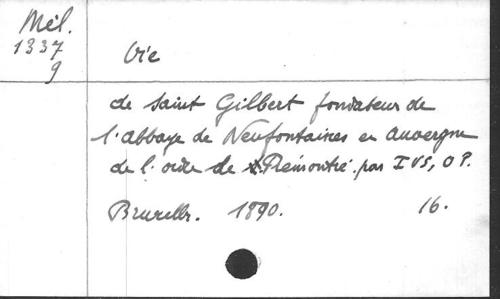 Mél.
1337
9
Vie
de Saint Gilbert fondateur de
l'abbaye de Neuffontaines en Auvergne
de l'ordre de Prémontré. par I VS, O P.
Bruxelles. 1890. 16.